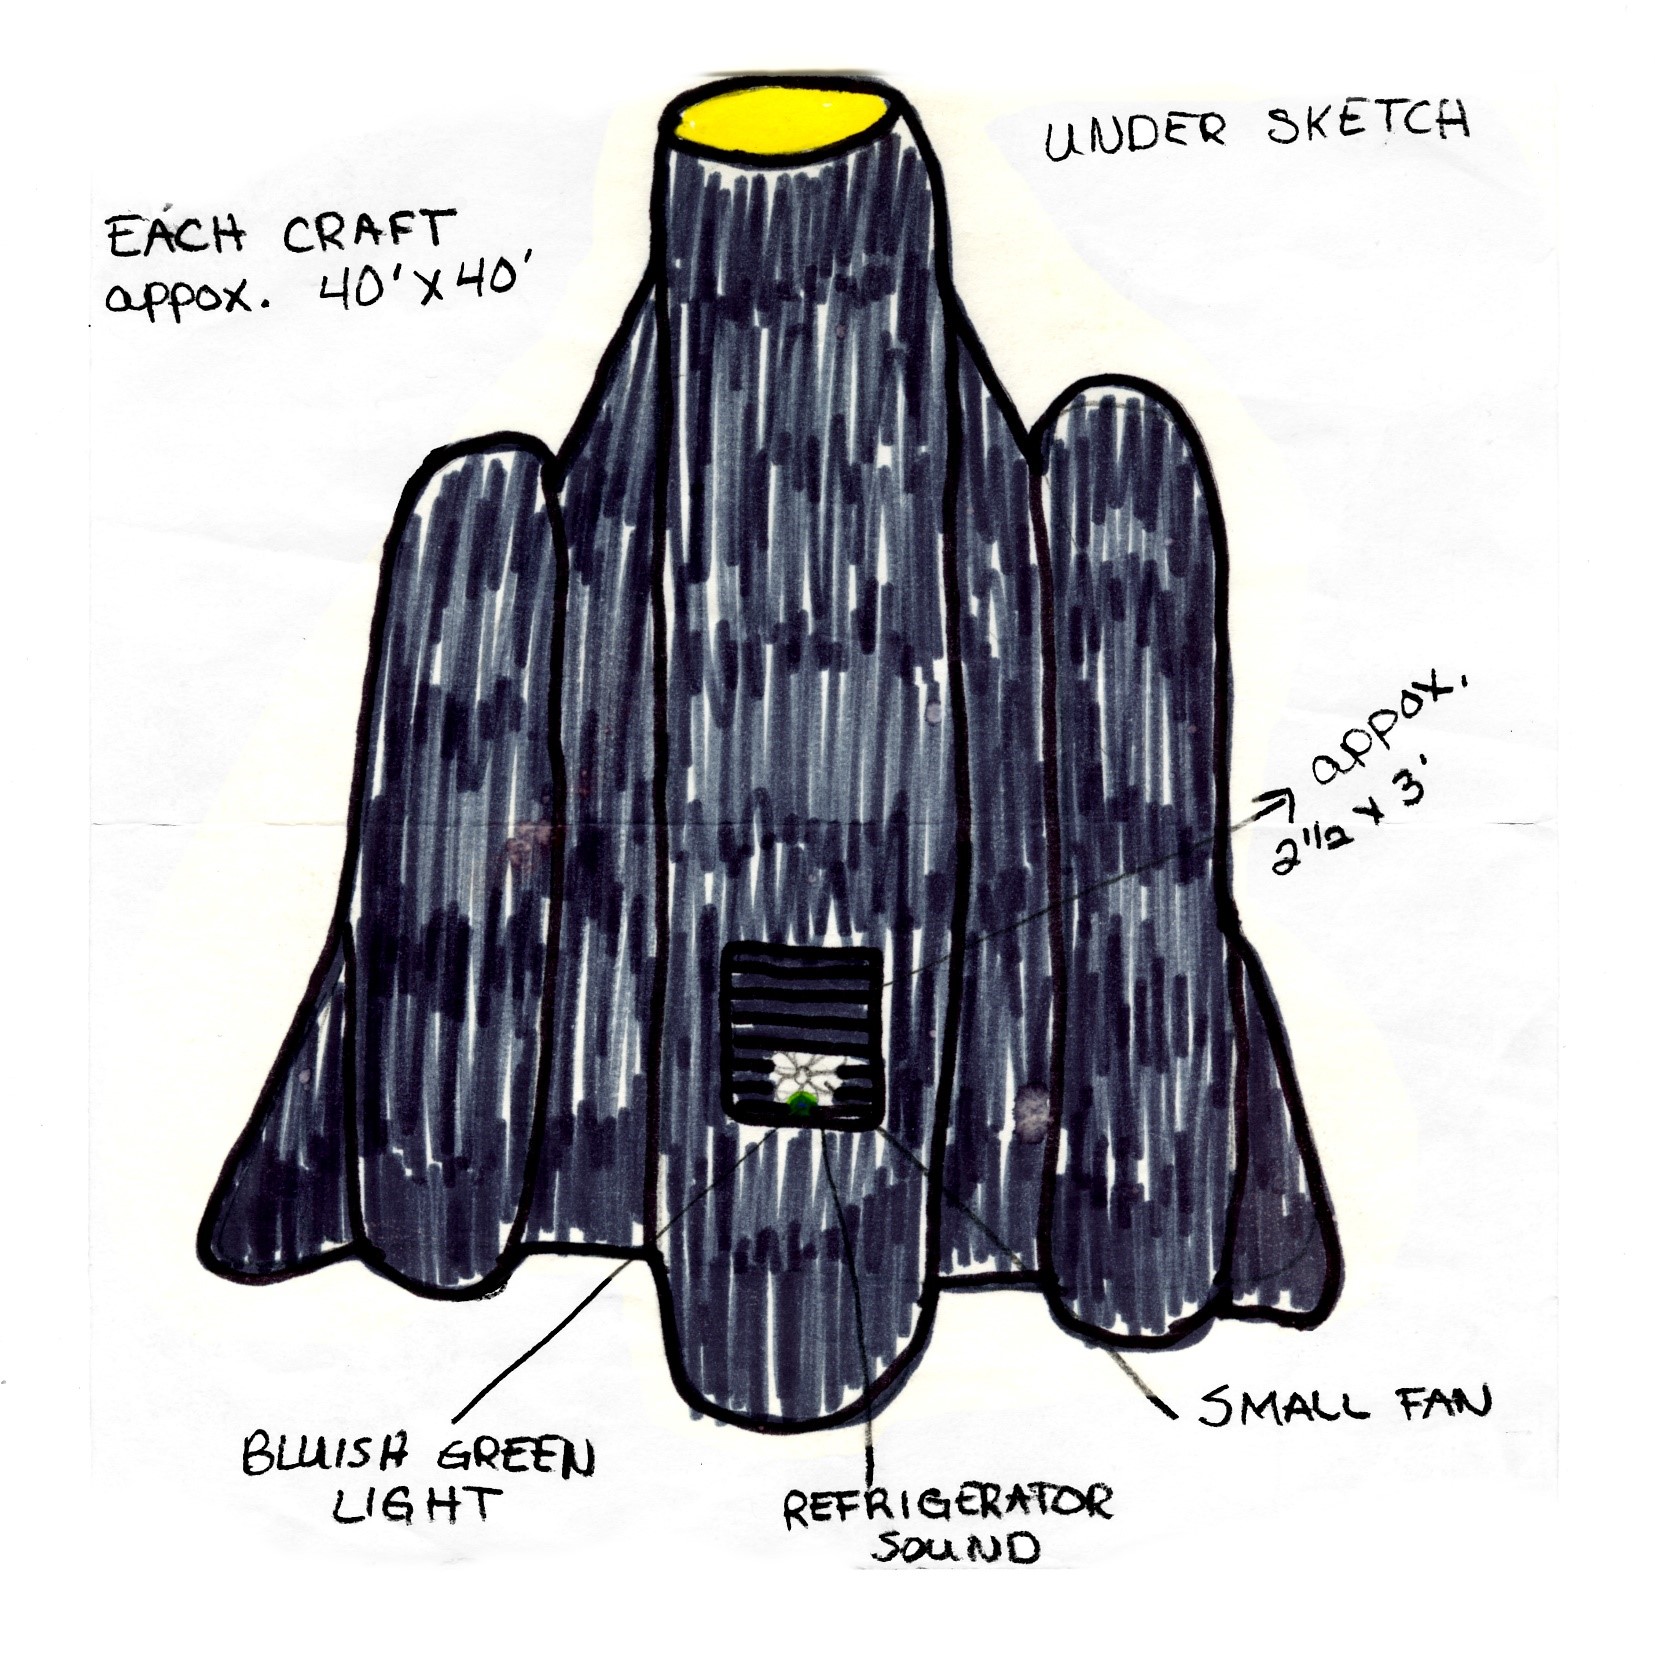 UNDER SKETCH
EACH CRAFT
appox. 40' x 40'
appox.
2 1/2 x 3'
SMALL FAN
BLUISH GREEN
LIGHT
REFRIGERATOR
SOUND